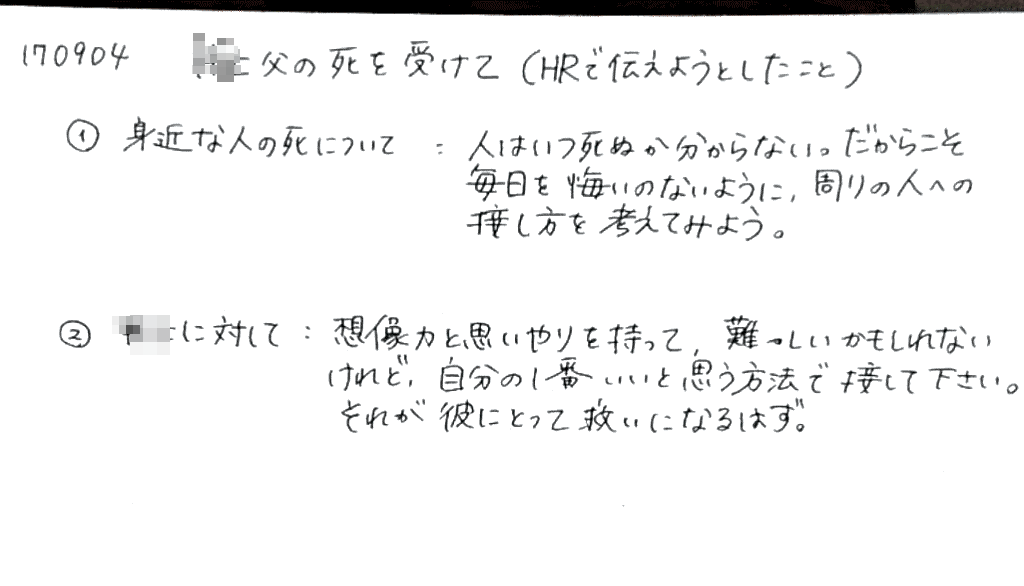 170904 父の死を受けて (HRで伝えようとしたこと)
① 身近な人の死について : 人はいつ死ぬか分からない。だからこそ
毎日を悔いのないように, 周りの人への
接し方を考えてみよう。
② に対して : 想像力と思いやりを持って, 難しいかもしれない
けれど, 自分の1番いいと思う方法で接して下さい。
それが彼にとって救いになるはず。